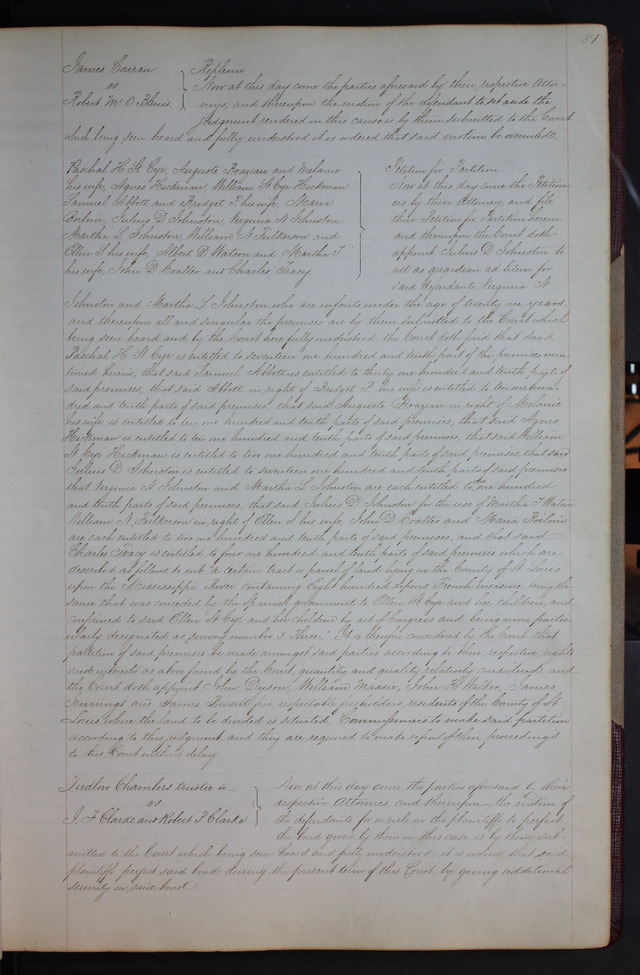 81
James Conran
vs
Robert McO'Blenis
Replevin
Now at this day come the parties aforesaid by their respective Attor-
neys, and thereupon the motion of the defendant to set aside the
judgment rendered in this cause is by them submitted to the Court
which being seen heard and fully understood it is ordered that said motion be overruled.
Paschal H St Cyr, Auguste Brazeau and Melanie
his wife, Agnes Hickman, William St Cyr Hickman
Samuel Abbott and Bridget P. his wife, Maria
Julius D Johnston, Verginia N Johnston
Martha L Johnston, William N Fulkerson and
Ellen S his wife, Albert D Watson and Martha T
his wife, John D Coalter and Charles Tracy
Petition for Partition
Now at this day come the Petition-
ers by their Attorney and file
their Petition for Partition herein
and thereupon the Court doth
appoint Julius D Johnston to
act as guardian ad litem for
said defendants Verginia N
Johnston and Martha L Johnston who are infants under the age of twenty one years
and thereupon all and singular the premises are by them submitted to the Court which
being seen heard and by the Court here fully understood, the Court doth find that said
Paschal H St Cyr is entitled to seventeen one hundred and tenth part of the premises men-
tioned herein, that said Samuel Abbott is entitled to thirty one hundred and tenth parts of
said premises, that said Abbott in right of Bridget P. his wife is entitled to ten one hun-
dred and tenth parts of said premises, that said Auguste Brazeau in right of Melanie
his wife is entitled to ten one hundred and tenth parts of said premises, that said Agnes
Hickman is entitled to ten one hundred and tenth parts of said premises, that said William
St Cyr Hickman is entitled to two one hundred and tenth parts of said premises, that said
Julius D Johnston is entitled to seventeen one hundred and tenth parts of said premises
that Verginia N Johnston and Martha L Johnston are each entitled to one hundred
and tenth parts of said premises, that said Julius D Johnston for the use of Martha T Watson
William N Fulkerson in right of Ellen S his wife, John D Coalter and Maria
are each entitled to two one hundred and tenth parts of said premises, and that said
Charles Tracy is entitled to four one hundred and tenth parts of said premises which are
described as follows to wit a certain tract or parcel of land lying in the County of St Louis
upon the Mississippi River containing Eight hundred arpens French measure being the
same that was conceded by the Spanish government to Ellen St Cyr and her children and
confirmed to said Ellen St Cyr and her children by act of Congress and being more partic-
ularly designated as survey number 3 Three." It is therefore considered by the court that
partition of said premises be made amongst said parties according to their respective rights
and interests as above found by the Court, quantity and quality relatively considered and
the Court doth appoint John William Massie, John H James
Jennings and James five respectable freeholders residents of the County of St
Louis where the land to be divided is situated Commissioners to make said partition
according to this judgment and they are required to make report of their proceedings
to this Court without delay.
Ludlow Chambers trustee &c
vs
J. F Clarke and Robert P Clarke
Now at this day come the parties aforesaid by their
respective Attornies and thereupon the motion of
the defendants for a rule on the plaintiffs to perfect
the bond given by them in this case is by them sub-
mitted to the Court which being seen heard and fully understood it is ordered that said
plaintiffs perfect said bond during the present term of this Court by giving additional
security on said bond